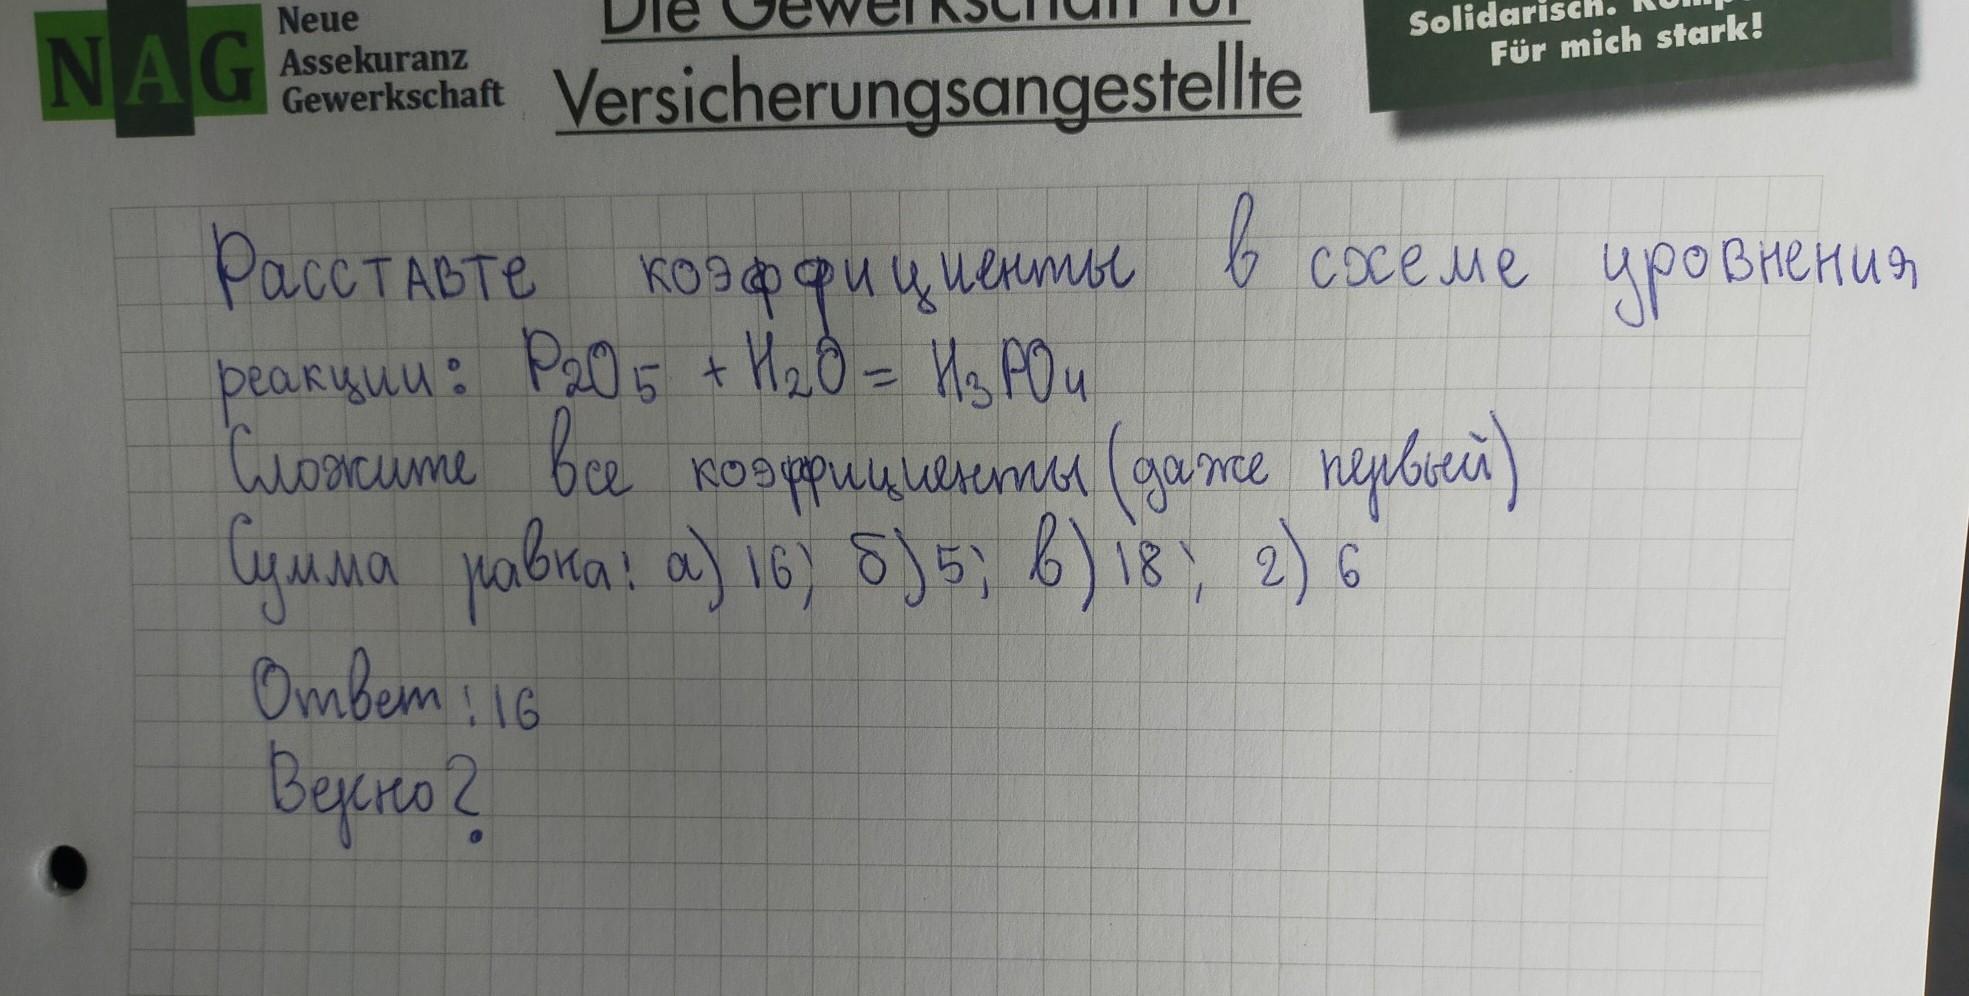 Neue
Assekuranz
Gewerkschaft
NAG
Die Gewerkschaft für
Versicherungsangestellte
Solidarisch.
Für mich stark!
Расставте коэффициенты в схеме уровнения
реакции: P₂O₅ + H₂O = H₃PO₄
Сложите все коэффициенты (даже первый)
Сумма равна: а) 16; б) 5; в) 18; г) 6
Ответ: 16
Верно?